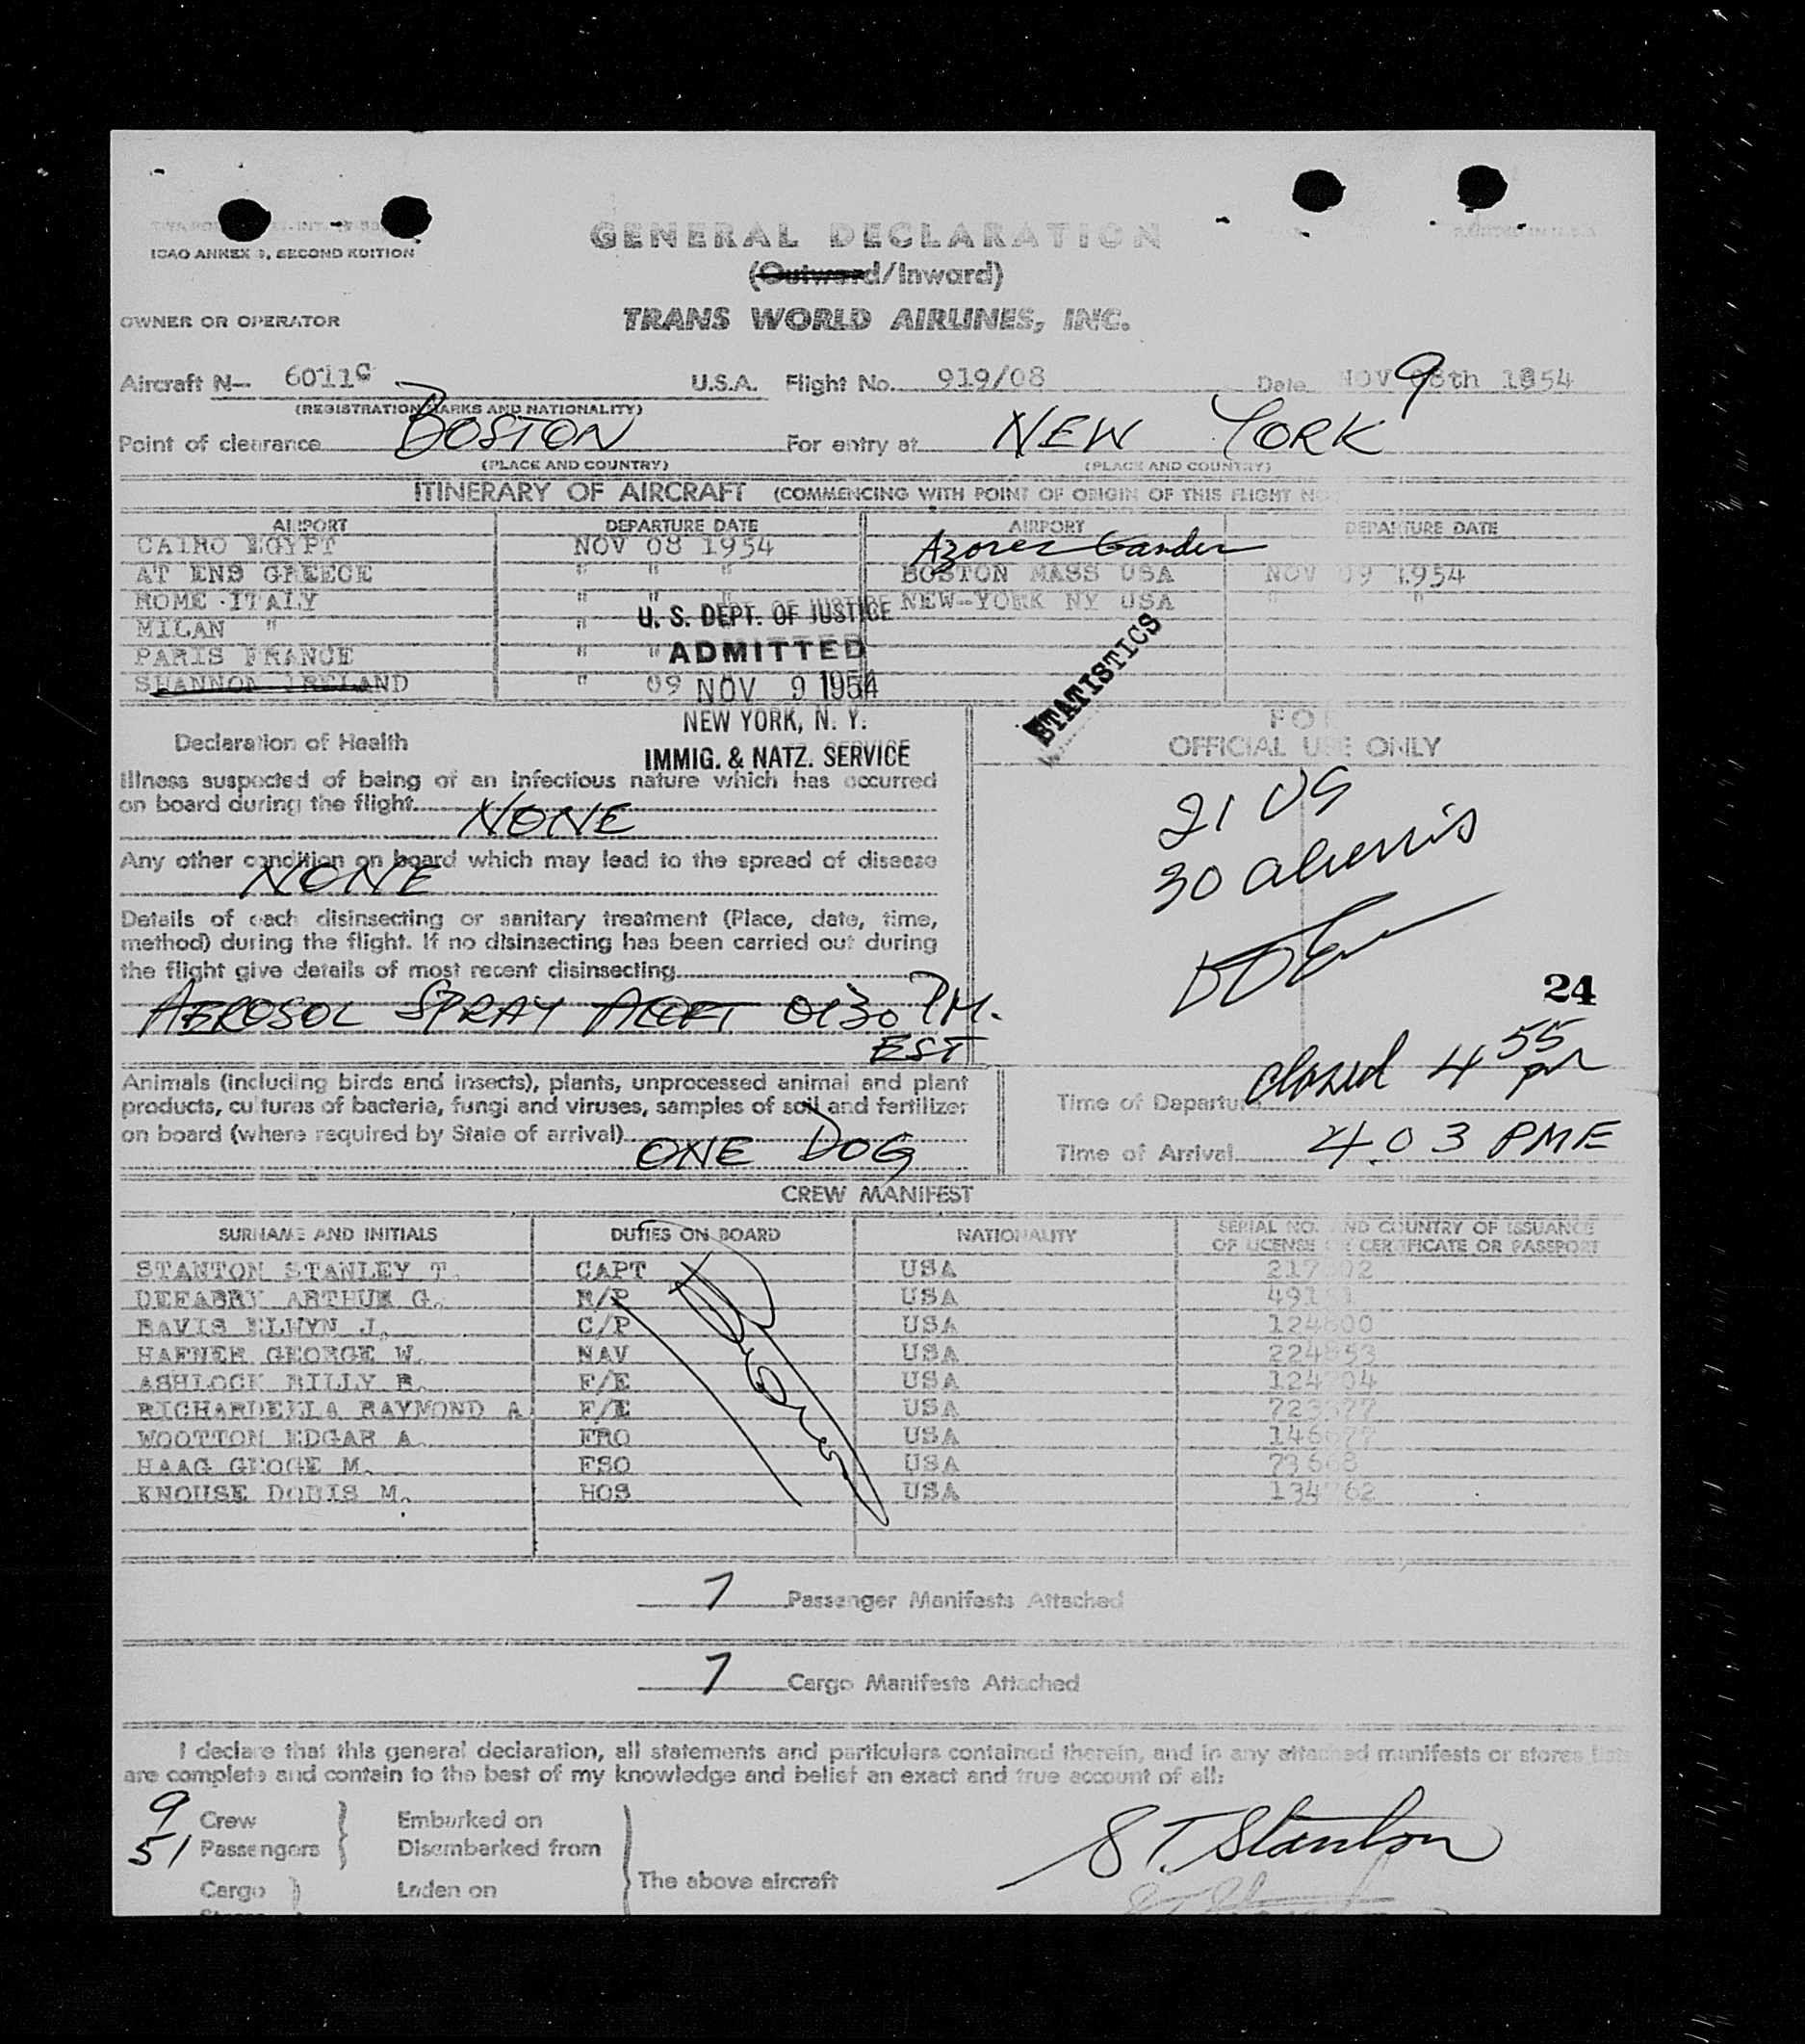 ICAO ANNEX 9, SECOND EDITION
GENERAL DECLARATION
(Outward/Inward)
OWNER OR OPERATOR
TRANS WORLD AIRLINES, INC.
Aircraft N— 6011C U.S.A. Flight No. 919/08 Date NOV 9 08th 1954
(REGISTRATION MARKS AND NATIONALITY)
Point of clearance BOSTON For entry at NEW YORK
(PLACE AND COUNTRY) (PLACE AND COUNTRY)
ITINERARY OF AIRCRAFT (COMMENCING WITH POINT OF ORIGIN OF THIS FLIGHT
AIRPORT DEPARTURE DATE AIRPORT DEPARTURE DATE
CAIRO EGYPT NOV 08 1954 Azores Gander
AT ENS GREECE " " " BOSTON MASS USA NOV 09 1954
ROME ITALY " " " NEW-YORK NY USA " "
MILAN " "
PARIS FRANCE " "
SHANNON IRELAND " 09
U. S. DEPT. OF JUSTICE
ADMITTED
NOV 9 1954
NEW YORK, N. Y.
IMMIG. & NATZ. SERVICE
STATISTICS
Declaration of Health
Illness suspected of being of an infectious nature which has occurred
on board during the flight
NONE
Any other condition on board which may lead to the spread of disease
NONE
Details of each disinsecting or sanitary treatment (Place, date, time,
method) during the flight. If no disinsecting has been carried out during
the flight give details of most recent disinsecting
AEROSOL SPRAY ALOFT 0130 PM.
EST
Animals (including birds and insects), plants, unprocessed animal and plant
products, cultures of bacteria, fungi and viruses, samples of soil and fertilizer
on board (where required by State of arrival)
ONE DOG
FOR
OFFICIAL USE ONLY
21 US
30 aliens
24
closed 4 55 pm
Time of Departure
Time of Arrival 4.03 PME
CREW MANIFEST
SURNAME AND INITIALS DUTIES ON BOARD NATIONALITY SERIAL NO. AND COUNTRY OF ISSUANCE
OF LICENSE OR CERTIFICATE OR PASSPORT
STANTON STANLEY T. CAPT USA
DEFABRY ARTHUR G. R/P USA
BAVIS ELWYN J. C/P USA
HAFNER GEORGE W. NAV USA
ASHLOCK BILLY B. F/E USA
RICHARDELLA RAYMOND A F/E USA
WOOTTON EDGAR A. FRO USA
HAAG GEOGE M. FSO USA
KNOUSE DORIS M. HOS USA
7 Passenger Manifests Attached
7 Cargo Manifests Attached
I declare that this general declaration, all statements and particulars contained therein, and in any attached manifests or stores lists
are complete and contain to the best of my knowledge and belief an exact and true account of all:
9 Crew Embarked on
51 Passengers Disembarked from
The above aircraft
Cargo Laden on
S T. Stanton